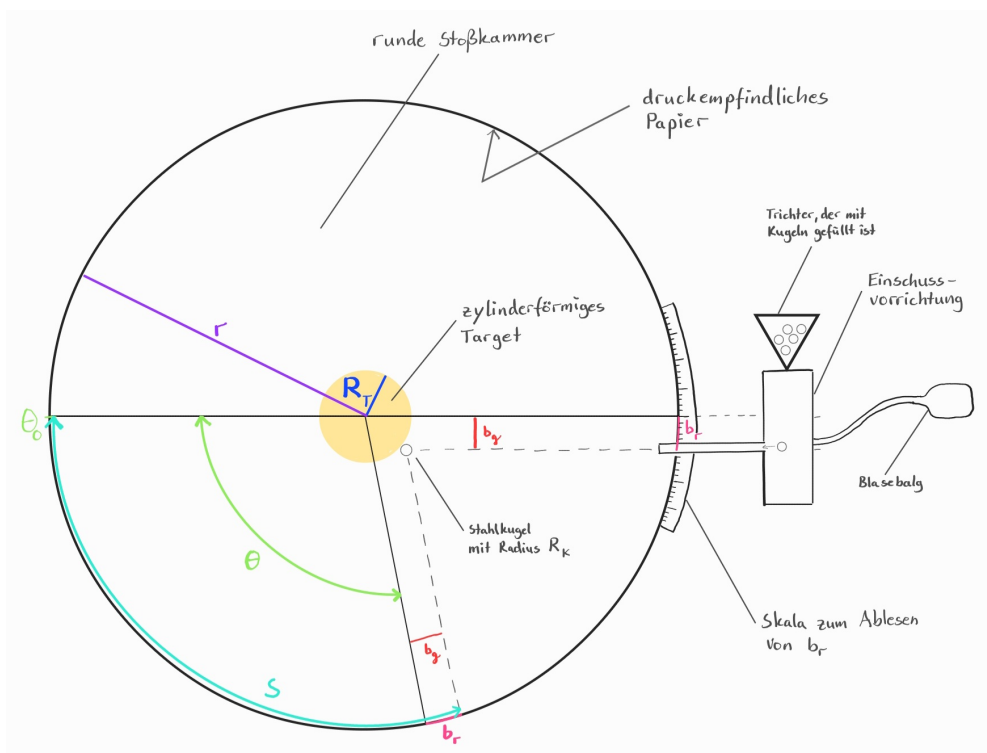 runde Stoßkammer
druckempfindliches
Papier
Trichter, der mit
Kugeln gefüllt ist
Einschuss-
vorrichtung
zylinderförmiges
Target
r
R_T
θ_0
b_g
b_r
Blasebalg
Stahlkugel
mit Radius R_K
θ
Skala zum Ablesen
von b_r
b_g
S
b_r